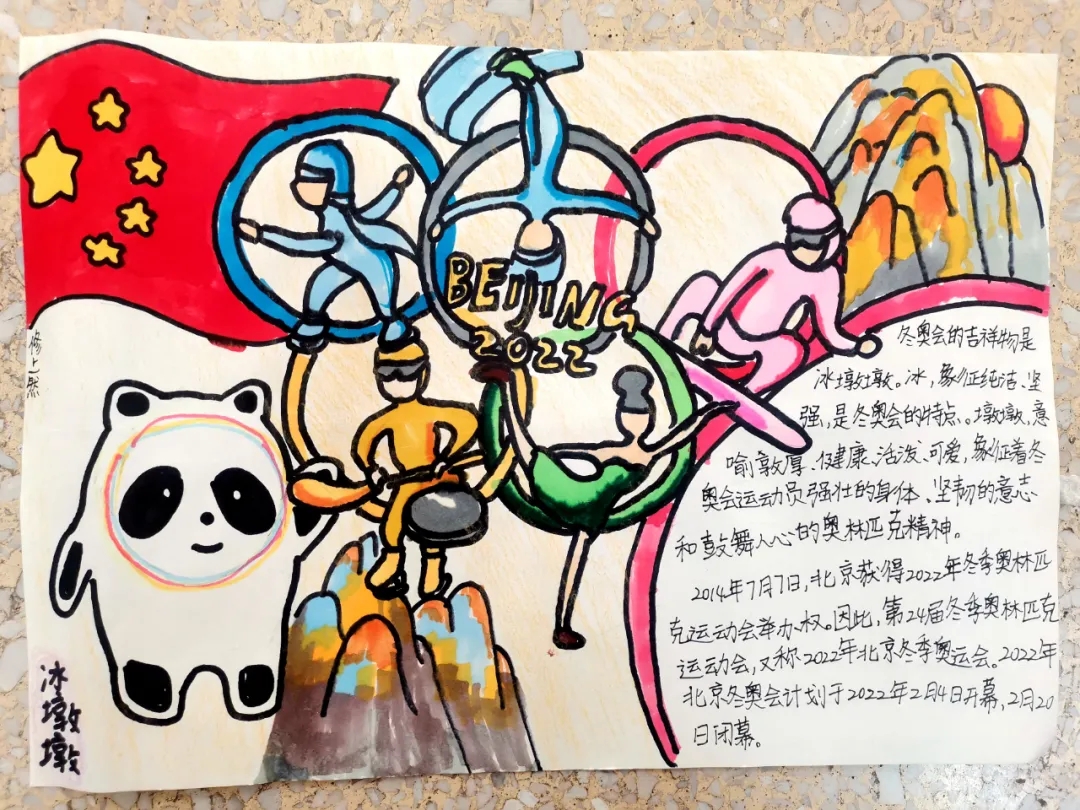 BEIJING
2022
冬奥会的吉祥物是
冰墩墩。冰,象征纯洁、坚
强,是冬奥会的特点。墩墩,意
喻敦厚、健康、活泼、可爱,象征着冬
奥会运动员强壮的身体、坚韧的意志
和鼓舞人心的奥林匹克精神。
2014年7月7日,北京获得2022年冬季奥林匹
克运动会举办权。因此,第24届冬季奥林匹克
运动会,又称2022年北京冬季奥运会。2022年
北京冬奥会计划于2022年2月4日开幕,2月20
日闭幕。
冰墩墩